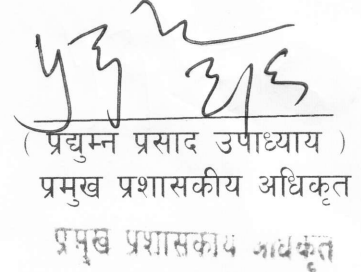 ( प्रद्युम्न प्रसाद उपाध्याय )
प्रमुख प्रशासकीय अधिकृत
प्रमुख प्रशासकीय अधिकृत